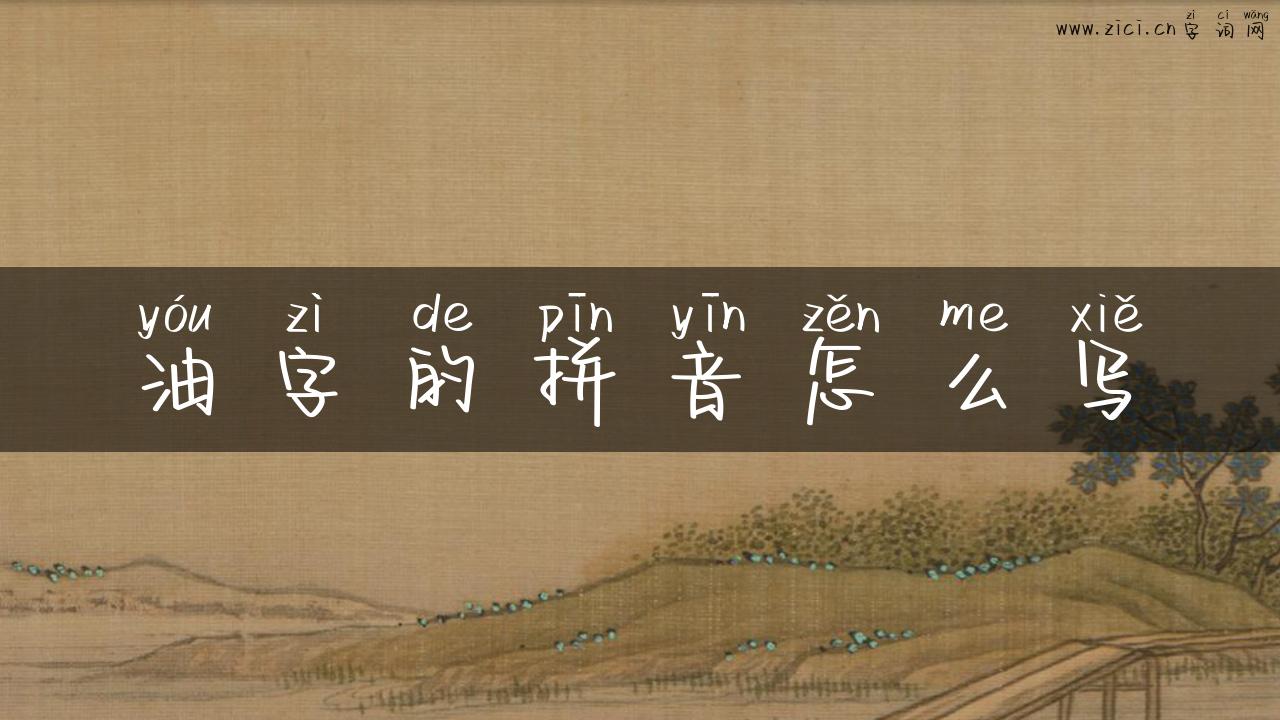 zì cí wǎng
www.zici.cn字词网
yóu zì de pīn yīn zěn me xiě
油字的拼音怎么写